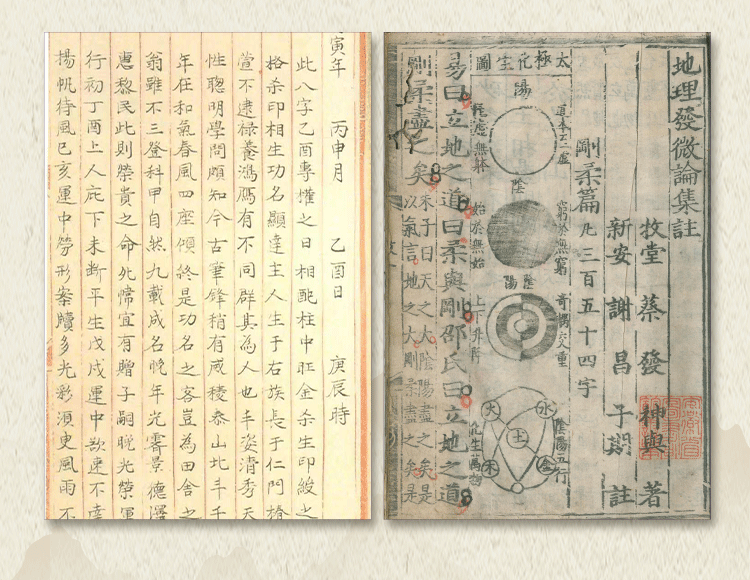 寅年 丙申月 乙酉日 庚辰時
此八字乙酉專權之日相配柱中旺金杀生印綬之
格杀印相生功名顯達主人生于右族長于仁門椿
萱不逮祿養鴻鴈有不同群其為人也丰姿清秀天
性聰明學問頗知今古筆鋒稍有威稜泰山北斗千
年在和氣春風四座傾終是功名之客豈為田舍之
翁雖不三登科甲自然九載成名晚年光霽景德澤
惠黎民此則榮貴之命 宜有贈子嗣晚光榮運
行初丁酉上人庇下未斷平生戊戌運中欲速不達
揚帆待風己亥運中勞形案牘多光彩須更風雨不
地理發微論集註
牧堂 蔡 發 神與 著
新安 謝 昌 子期 註
剛柔篇 凡三百五十四字
太極化生圖
陽
陰
始於無始
窮於無窮
陰 陽
上下升降
陰陽五行
化生萬物
火
水
土
木
金
易曰立地之道曰柔與剛邵氏曰立地之道
剛柔盡之矣
朱子曰天之大陰陽盡之矣是
以氣言地之大剛柔盡之矣是